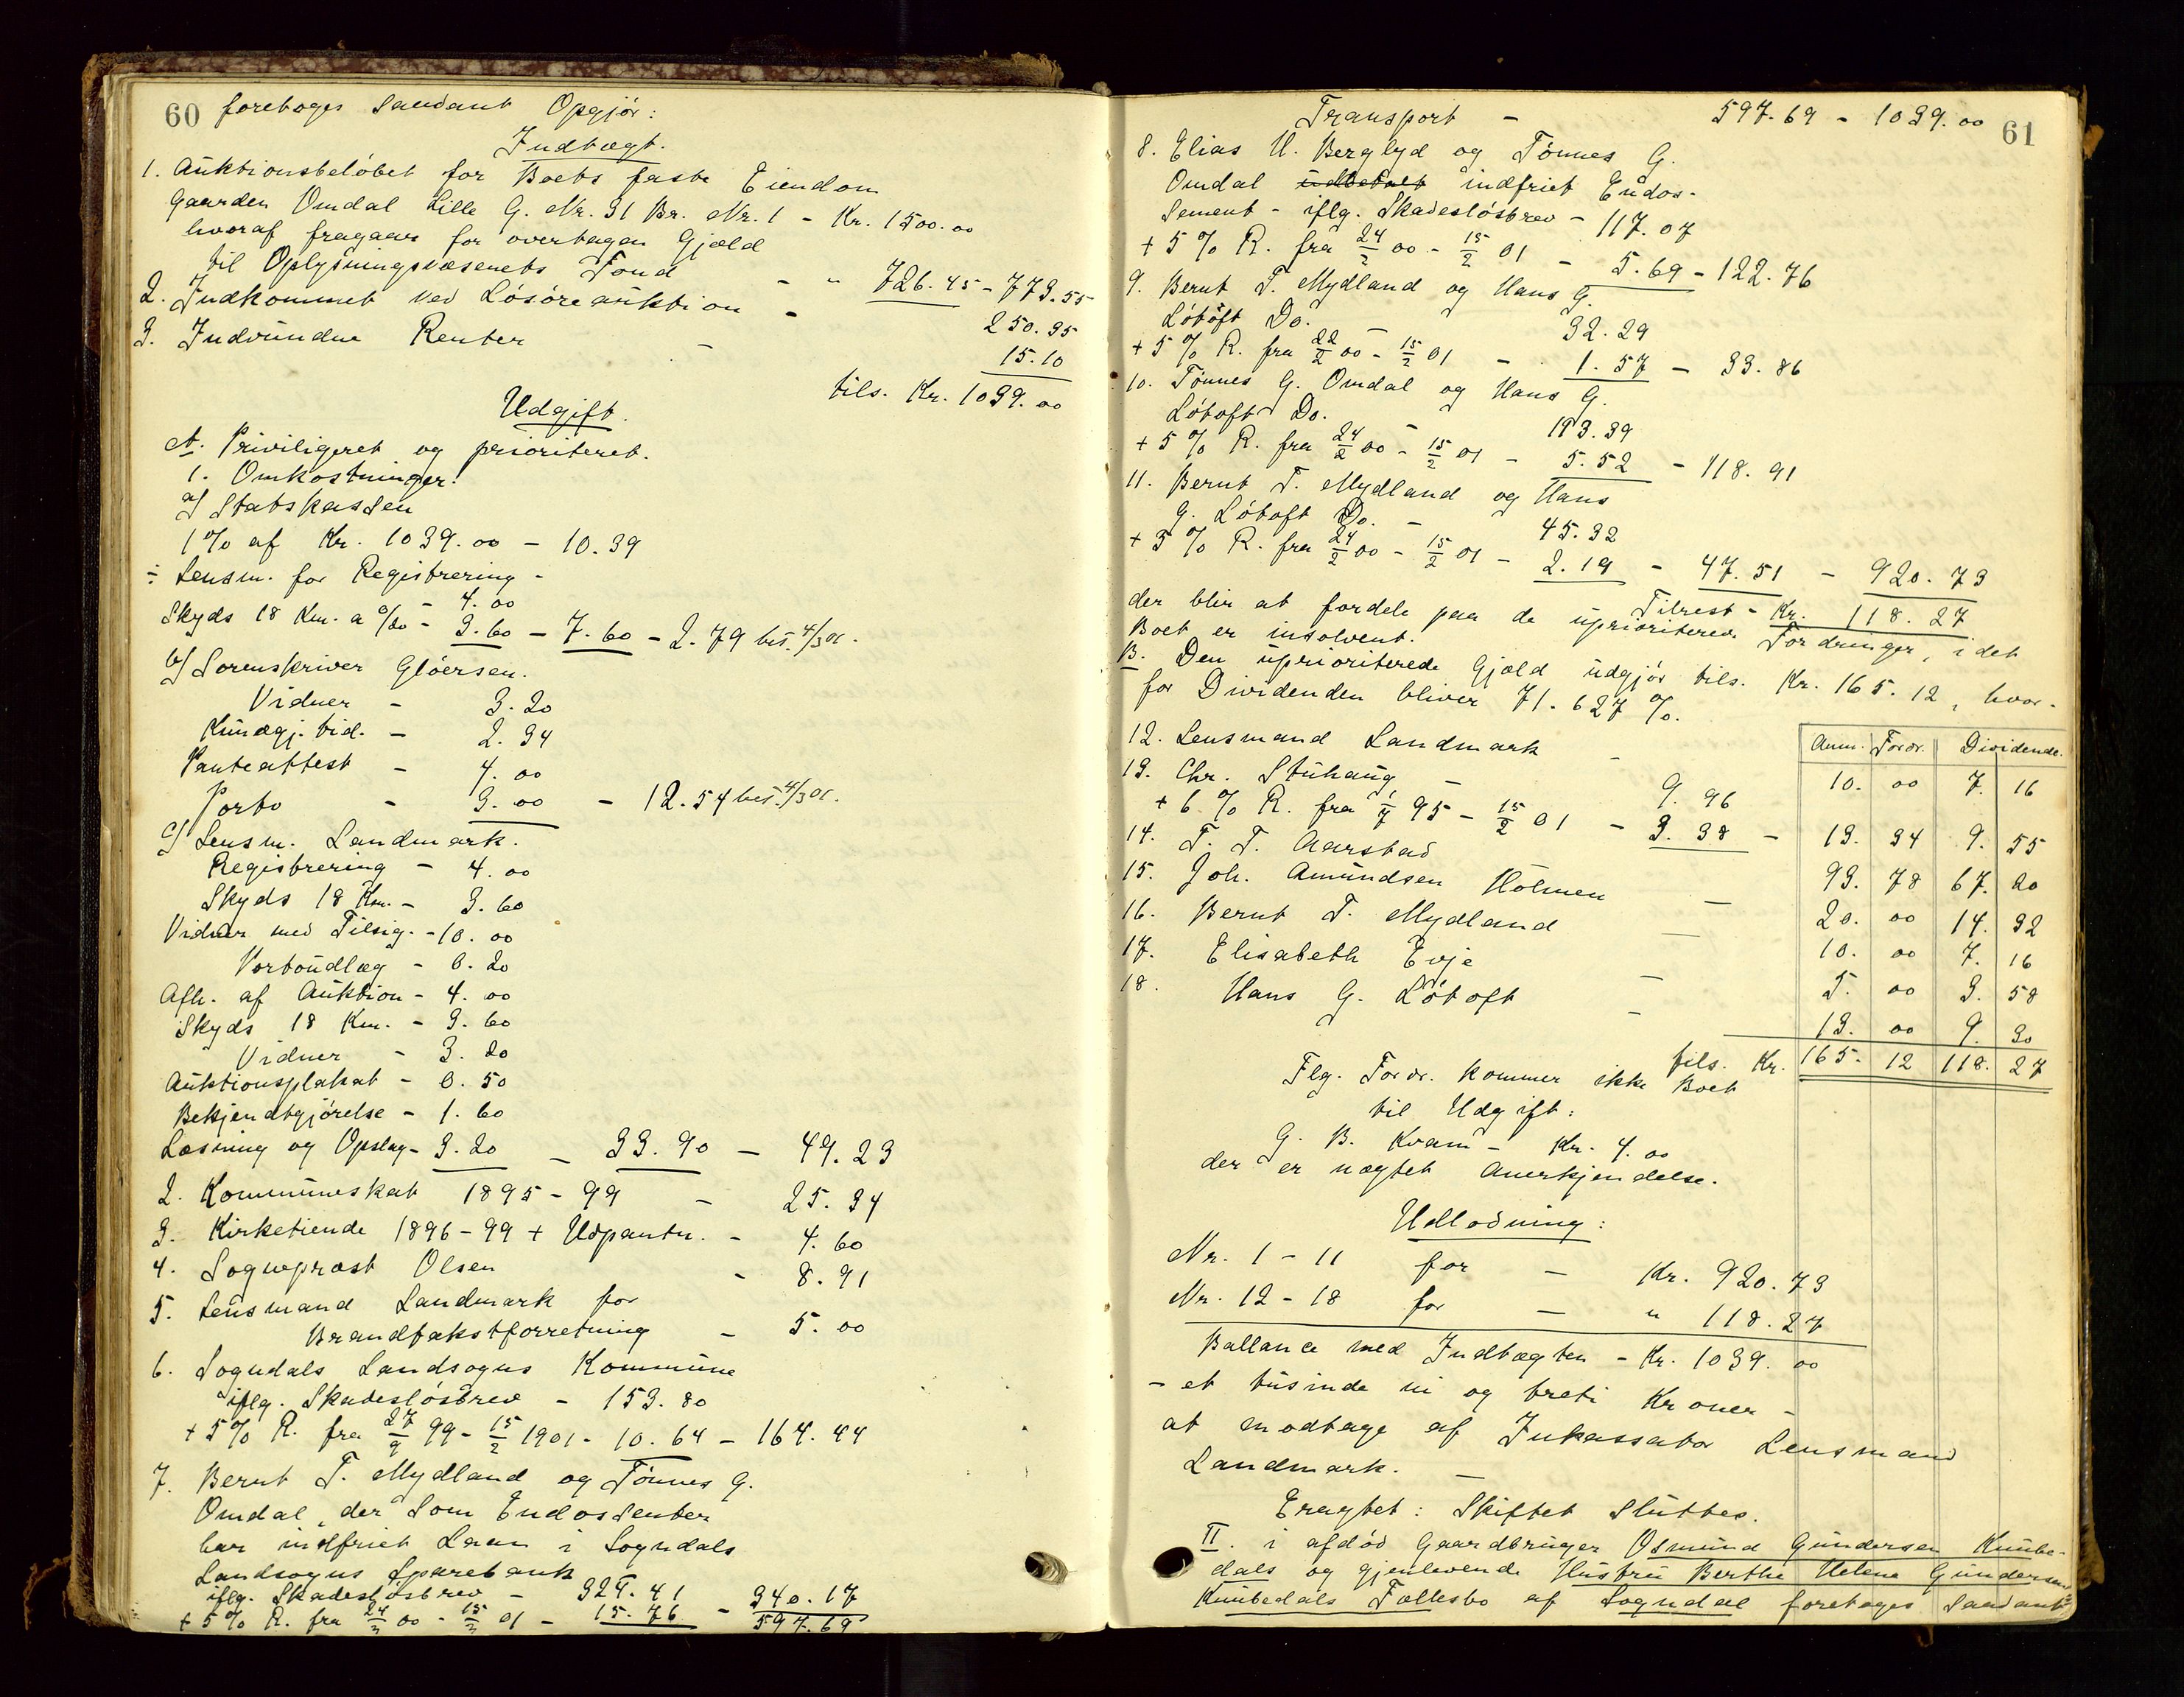 60 foretages saadant Opgjör:
Indtægt.
1. Auktionsbelöbet for Boets faste Eiendom
Gaarden Omdal Lille G. Nr. 31 Br. Nr. 1 - Kr. 1500.00
hvoraf fragaar for overtagen Gjæld
til Oplysningsvæsenets Fond - " 726.45 - 773.55
2. Indkommet ved Lösöreauktion - 250.35
3. Indvundne Renter - 15.10
tils. Kr. 1039.00
Udgift.
A. Priviligeret og prioriteret.
1. Omkostninger:
a/ Statskassen
1% af Kr. 1039.00 - 10.39
÷ Lensm. for Registrering -
- 4.00
Skyds 18 Km. a 0/20 - 3.60 - 7.60 - 2.79 bet. 4/3 01.
b/ Sorenskriver Glöersen.
Vidner - 3.20
Kundgj. tid. - 2.34
Panteattest - 4.00
Porto - 3.00 - 12.54 bet. 4/3 01.
c/ Lensm. Landmark.
Registrering - 4.00
Skyds 18 Km. - 3.60
Vidner med Tilsig. - 10.00
Portoudlæg - 0.20
Afh. af Auktion - 4.00
Skyds 18 Km. - 3.60
Vidner - 3.20
Auktionsplakat - 0.50
Bekjendtgjörelse - 1.60
Læsning og Opslag - 3.20 - 33.90 - 49.23
2. Kommuneskat 1895-99 - 25.34
3. Kirketiende 1896-99 + Udpantn. - 4.60
4. Sogneprest Olsen - 8.91
5. Lensmand Landmark for
Brandtakstforretning - 5.00
6. Sogndals Landsogns Kommune
iflg. Skadeslösbrev - 153.80
+ 5% R. fra 27/9 99 - 15/2 1901 - 10.64 - 164.44
7. Bernt T. Mydland og Tönnes G.
Omdal, der som Endossenter
har indfriet Laan i Sogndals
Landsogns Sparebank
iflg. Skadeslösbrev - 324.41
+ 5% R. fra 24/2 00 - 15/2 01 - 15.76 - 340.17
597.69
61
Transport - 597.69 - 1039.00
8. Elias U. Berglyd og Tönnes G.
Omdal udbetalt indfriet Endos-
sement - iflg. Skadeslösbrev - 117.07
+ 5% R. fra 24/2 00 - 15/2 01 - 5.69 - 122.76
9. Bernt T. Mydland og Hans G.
Lötoft Do. - 32.29
+ 5% R. fra 22/2 00 - 15/2 01 - 1.57 - 33.86
10. Tönnes G. Omdal og Hans G.
Lötoft Do. - 113.39
+ 5% R. fra 24/2 00 - 15/2 01 - 5.52 - 118.91
11. Bernt T. Mydland og Hans
G. Lötoft Do. - 45.32
+ 5% R. fra 24/2 00 - 15/2 01 - 2.19 - 47.51 - 920.73
Tilrest - Kr. 118.27
der blir at fordele paa de uprioriterede Fordringer, idet
Boet er insolvent.
B. Den uprioriterede Gjæld udgjör tils. Kr. 165.12, hvor-
for Dividenden bliver 71.627 %.
Anm. Fordr. Dividende.
12. Lensmand Landmark - 10.00 7.16
13. Chr. Stuhaug - 9.96
+ 6% R. fra 1/7 95 - 15/2 01 - 3.38 - 13.34 9.55
14. T. T. Aarstad 93.78 67.20
15. Joh. Amundsen Holmen - 20.00 14.32
16. Bernt T. Mydland - 10.00 7.16
17. Elisabeth Evje - 5.00 3.58
18. Hans G. Lötoft - 13.00 9.30
tils. Kr. 165.12 118.27
Flg. Fordr. kommer ikke Boet
til Udgift:
G. B. Kvam - Kr. 4.00
der er nægtet Anerkjendelse.
Udlodning:
Nr. 1 - 11 for - Kr. 920.73
Nr. 12 - 18 for - " 118.27
Ballance med Indtægten - Kr. 1039.00
- et tusinde ni og treti Kroner -
at modtage af Inkassator Lensmand
Landmark. -
Eragtet: Skiftet sluttes.
II. i afdöd Gaardbruger Osmund Gundersen Knube-
dals og gjenlevende Hustru Berthe Helene Gundersen
Knubedals Fællesbo af Sogndal foretages saadant